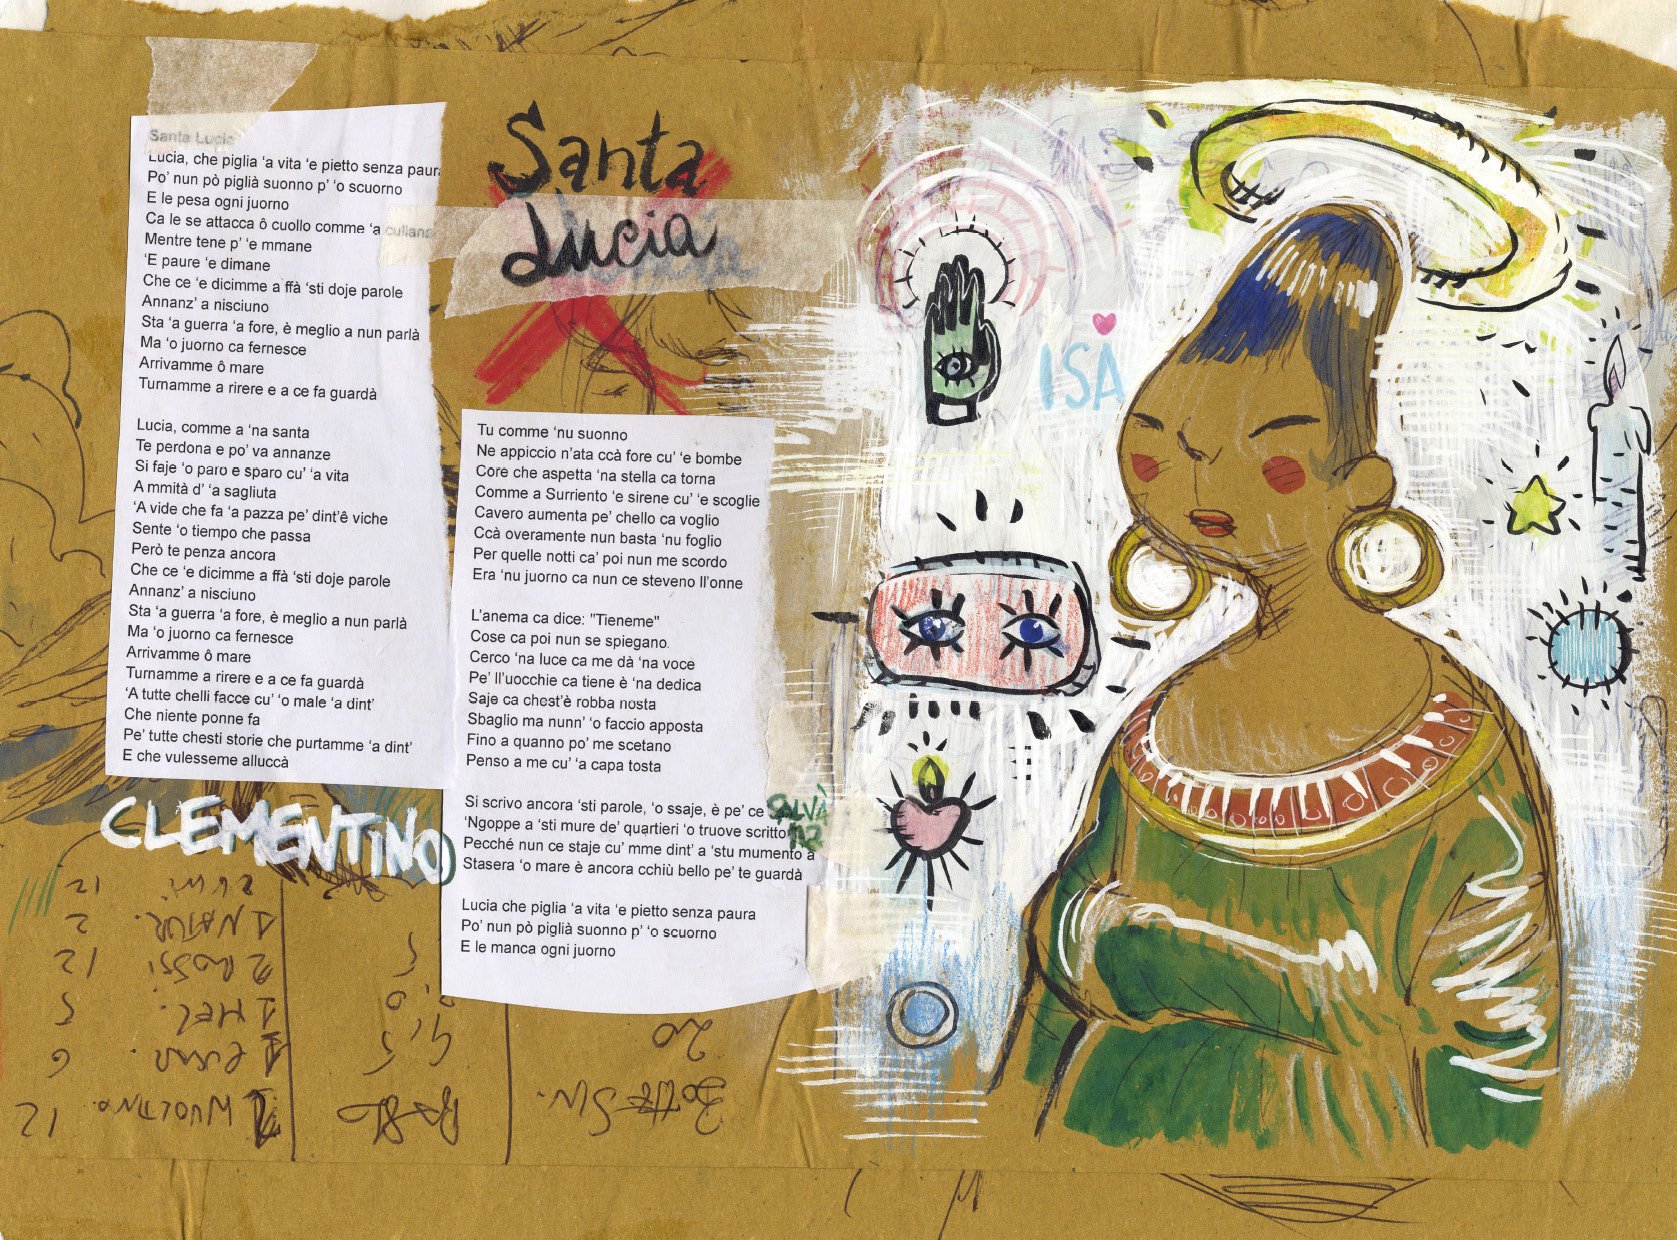 Santa Lucia
Lucia, che piglia ‘a vita ‘e pietto senza paura
Po’ nun pò piglià suonno p’ ‘o scuorno
E le pesa ogni juorno
Ca le se attacca ô cuollo comme ‘a cullana
Mentre tene p’ ‘e mmane
‘E paure ‘e dimane
Che ce ‘e dicimme a ffà ‘sti doje parole
Annanz’ a nisciuno
Sta ‘a guerra ‘a fore, è meglio a nun parlà
Ma ‘o juorno ca fernesce
Arrivamme ô mare
Turnamme a rirere e a ce fa guardà
Lucia, comme a ‘na santa
Te perdona e po’ va annanze
Si faje ‘o paro e sparo cu’ ‘a vita
A mmità d’ ‘a sagliuta
‘A vide che fa ‘a pazza pe’ dint’ê viche
Sente ‘o tiempo che passa
Però te penza ancora
Che ce ‘e dicimme a ffà ‘sti doje parole
Annanz’ a nisciuno
Sta ‘a guerra ‘a fore, è meglio a nun parlà
Ma ‘o juorno ca fernesce
Arrivamme ô mare
Turnamme a rirere e a ce fa guardà
‘A tutte chelli facce cu’ ‘o male ‘a dint’
Che niente ponne fa
Pe’ tutte chesti storie che purtamme ‘a dint’
E che vulesseme alluccà
CLEMENTINO
Santa
Lucia
Tu comme ‘nu suonno
Ne appiccio n’ata ccà fore cu’ ‘e bombe
Core che aspetta ‘na stella ca torna
Comme a Surriento ‘e sirene cu’ ‘e scoglie
Cavero aumenta pe’ chello ca voglio
Ccà overamente nun basta ‘nu foglio
Per quelle notti ca’ poi nun me scordo
Era ‘nu juorno ca nun ce steveno ll’onne
L’anema ca dice: "Tieneme"
Cose ca poi nun se spiegano
Cerco ‘na luce ca me dà ‘na voce
Pe’ ll’uocchie ca tiene è ‘na dedica
Saje ca chest’è robba nosta
Sbaglio ma nunn’ ‘o faccio apposta
Fino a quanno po’ me scetano
Penso a me cu’ ‘a capa tosta
Si scrivo ancora ‘sti parole, ‘o ssaje, è pe’ ce
‘Ngoppe a ‘sti mure de’ quartieri ‘o truove scritto
Pecché nun ce staje cu’ mme dint’ a ‘stu mumento a
Stasera ‘o mare è ancora cchiù bello pe’ te guardà
Lucia che piglia ‘a vita ‘e pietto senza paura
Po’ nun pò piglià suonno p’ ‘o scuorno
E le manca ogni juorno
SALVÀ
ISA
12
2 NATUR. 2
2 ROSSI 12
1 MEL. 5
6
12
20